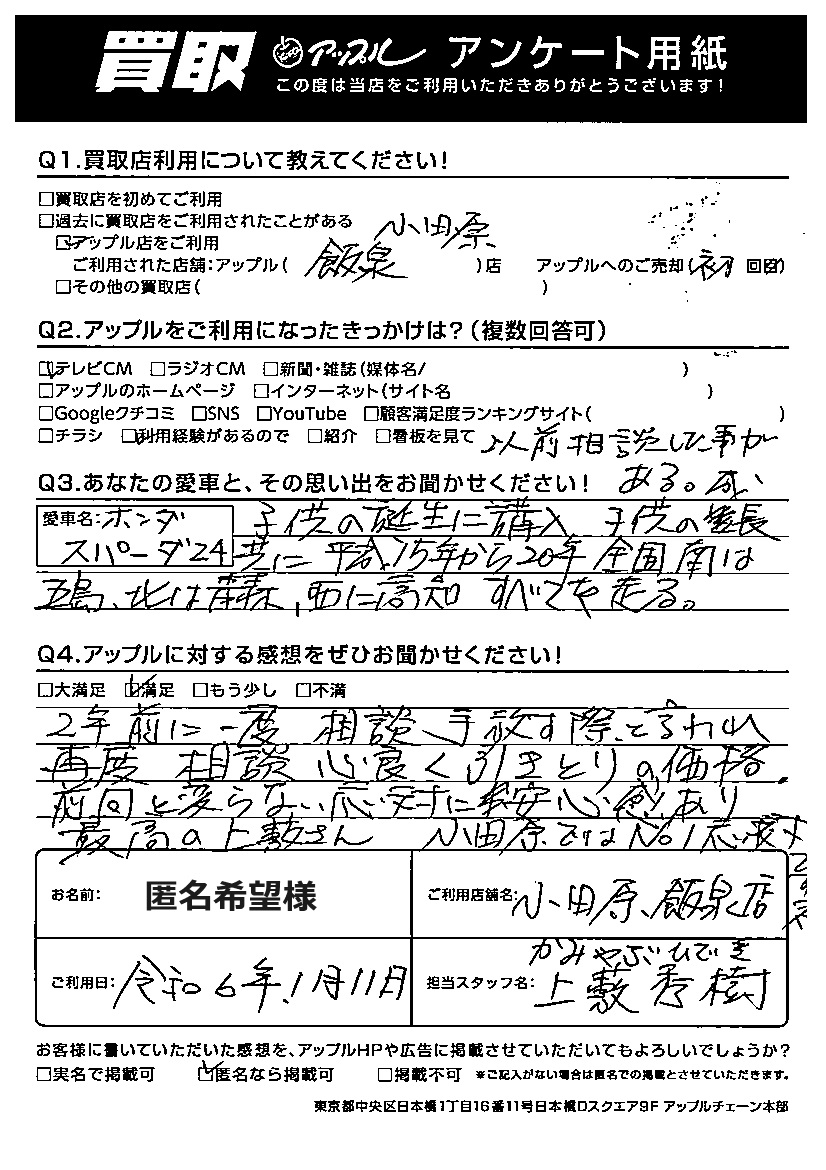 買取 アップル アンケート用紙
この度は当店をご利用いただきありがとうございます!
Q1.買取店利用について教えてください!
□買取店を初めてご利用
□過去に買取店をご利用されたことがある
□アップル店をご利用 小田原
ご利用された店舗:アップル( 飯泉 )店 アップルへのご売却(初 回目)
□その他の買取店( )
Q2.アップルをご利用になったきっかけは?(複数回答可)
☑テレビCM □ラジオCM □新聞・雑誌(媒体名/ )
□アップルのホームページ □インターネット(サイト名 )
□Googleクチコミ □SNS □YouTube □顧客満足度ランキングサイト( )
□チラシ ☑利用経験があるので □紹介 □看板を見て 以前相談した事が
ある。
Q3.あなたの愛車と、その思い出をお聞かせください!
愛車名:ホンダ 子供の誕生に購入 子供の成長
スパーダ24 共に 平成15年から20年 全国南は
五島、北は青森、西に高知 すべてを走る。
Q4.アップルに対する感想をぜひお聞かせください!
□大満足 ☑満足 □もう少し □不満
2年前に一度 相談、手放す際、と言われ
再度 相談 心良く引きとりの価格、
前回と変らない応対に安心感あり
最高の上藪さん 小田原ではNo.1応対
お名前: 匿名希望様
ご利用店舗名: 小田原、飯泉店
ご利用日: 令和6年1月11日
かみやぶひでき
担当スタッフ名: 上藪秀樹
お客様に書いていただいた感想を、アップルHPや広告に掲載させていただいてもよろしいでしょうか?
□実名で掲載可 ☑匿名なら掲載可 □掲載不可 ※ご記入がない場合は匿名での掲載とさせていただきます。
東京都中央区日本橋1丁目16番11号日本橋Dスクエア9F アップルチェーン本部